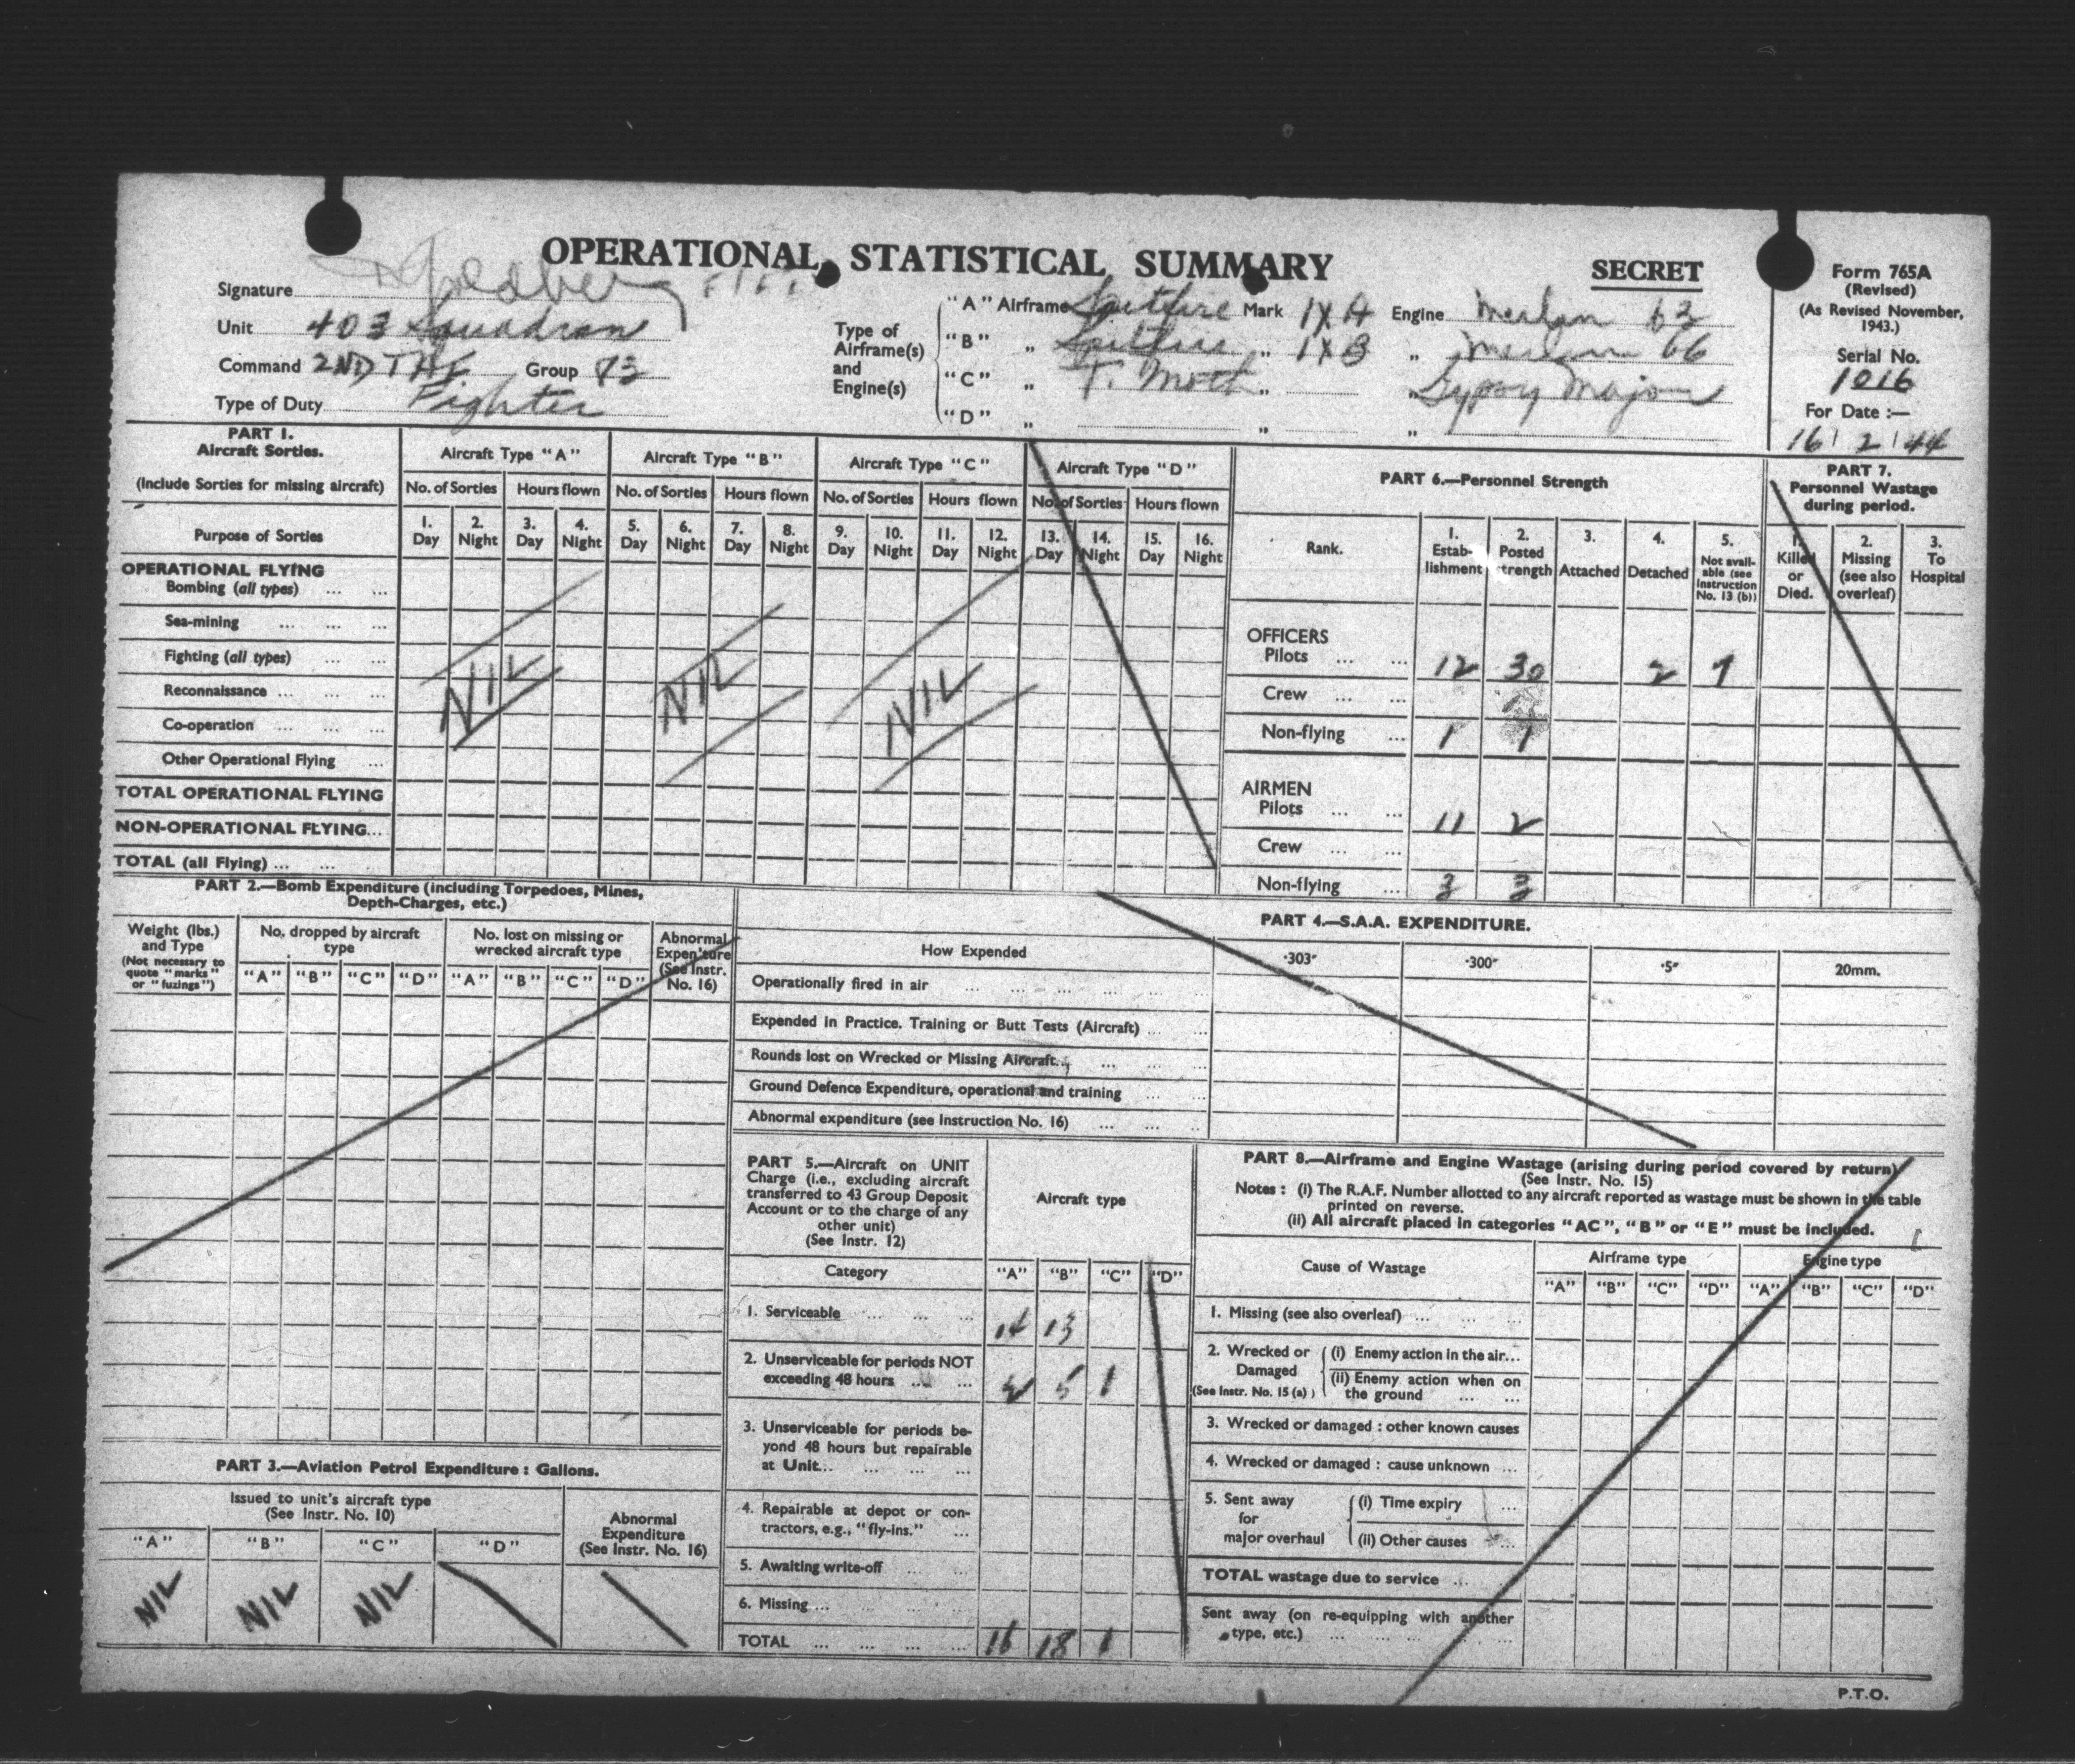 OPERATIONAL STATISTICAL SUMMARY
SECRET
Form 765A
(Revised)
(As Revised November,
1943.)
Serial No.
1016
For Date :—
16 | 2 | 44
Signature Goldberg
Unit 403 Squadron
Command 2ND TAF Group 83
Type of Duty Fighter
Type of Airframe(s) and Engine(s)
"A" Airframe Spitfire Mark IXA Engine Merlin 63
"B" „ Spitfire „ IXB „ Merlin 66
"C" „ T. Moth „ „ Gypsy Major
"D" „ „ „
PART 1.
Aircraft Sorties.
(Include Sorties for missing aircraft)
Aircraft Type "A" Aircraft Type "B" Aircraft Type "C" Aircraft Type "D"
No. of Sorties Hours flown No. of Sorties Hours flown No. of Sorties Hours flown No. of Sorties Hours flown
Purpose of Sorties
1. Day 2. Night 3. Day 4. Night 5. Day 6. Night 7. Day 8. Night 9. Day 10. Night 11. Day 12. Night 13. Day 14. Night 15. Day 16. Night
OPERATIONAL FLYING
Bombing (all types) ... ...
Sea-mining ... ... ...
Fighting (all types) ... ...
Reconnaissance ... ... ...
Co-operation ... ... ...
Other Operational Flying ...
NIL NIL NIL
TOTAL OPERATIONAL FLYING
NON-OPERATIONAL FLYING...
TOTAL (all Flying) ... ...
PART 6.—Personnel Strength
Rank.
1. Estab-lishment
2. Posted strength
3. Attached
4. Detached
5. Not avail-able (see Instruction No. 13 (b))
OFFICERS
Pilots ... ... 12 30 2 7
Crew ... ...
Non-flying ... 1 1
AIRMEN
Pilots ... ... 11 2
Crew ... ...
Non-flying ... 3 3
PART 7.
Personnel Wastage
during period.
1. Killed or Died.
2. Missing (see also overleaf)
3. To Hospital
PART 2.—Bomb Expenditure (including Torpedoes, Mines,
Depth-Charges, etc.)
Weight (lbs.)
and Type
(Not necessary to
quote "marks"
or "fuzings")
No. dropped by aircraft
type
No. lost on missing or
wrecked aircraft type
Abnormal
Expen'ture
(See Instr.
No. 16)
"A" "B" "C" "D" "A" "B" "C" "D"
PART 4.—S.A.A. EXPENDITURE.
How Expended ·303" ·300" ·5" 20mm.
Operationally fired in air ... ... ... ... ... ...
Expended in Practice. Training or Butt Tests (Aircraft) ... ...
Rounds lost on Wrecked or Missing Aircraft... ... ...
Ground Defence Expenditure, operational and training ... ...
Abnormal expenditure (see Instruction No. 16) ... ... ...
PART 3.—Aviation Petrol Expenditure : Gallons.
Issued to unit's aircraft type
(See Instr. No. 10)
Abnormal
Expenditure
(See Instr. No. 16)
"A" "B" "C" "D"
NIL NIL NIL
PART 5.—Aircraft on UNIT
Charge (i.e., excluding aircraft
transferred to 43 Group Deposit
Account or to the charge of any
other unit)
(See Instr. 12)
Aircraft type
Category "A" "B" "C" "D"
1. Serviceable ... ... ... 14 13
2. Unserviceable for periods NOT
exceeding 48 hours ... ... 2 5 1
3. Unserviceable for periods be-
yond 48 hours but repairable
at Unit... ... ... ...
4. Repairable at depot or con-
tractors, e.g., "fly-ins." ...
5. Awaiting write-off ... ...
6. Missing ... ... ... ...
TOTAL ... ... ... ... 16 18 1
PART 8.—Airframe and Engine Wastage (arising during period covered by return)
(See Instr. No. 15)
Notes : (i) The R.A.F. Number allotted to any aircraft reported as wastage must be shown in the table
printed on reverse.
(ii) All aircraft placed in categories "AC", "B" or "E" must be included.
Cause of Wastage Airframe type Engine type
"A" "B" "C" "D" "A" "B" "C" "D"
1. Missing (see also overleaf) ... ... ...
2. Wrecked or Damaged (See Instr. No. 15 (a) )
(i) Enemy action in the air...
(ii) Enemy action when on
the ground ... ...
3. Wrecked or damaged : other known causes
4. Wrecked or damaged : cause unknown ...
5. Sent away for major overhaul
(i) Time expiry ...
(ii) Other causes ...
TOTAL wastage due to service ...
Sent away (on re-equipping with another
type, etc.) ... ... ... ...
P.T.O.